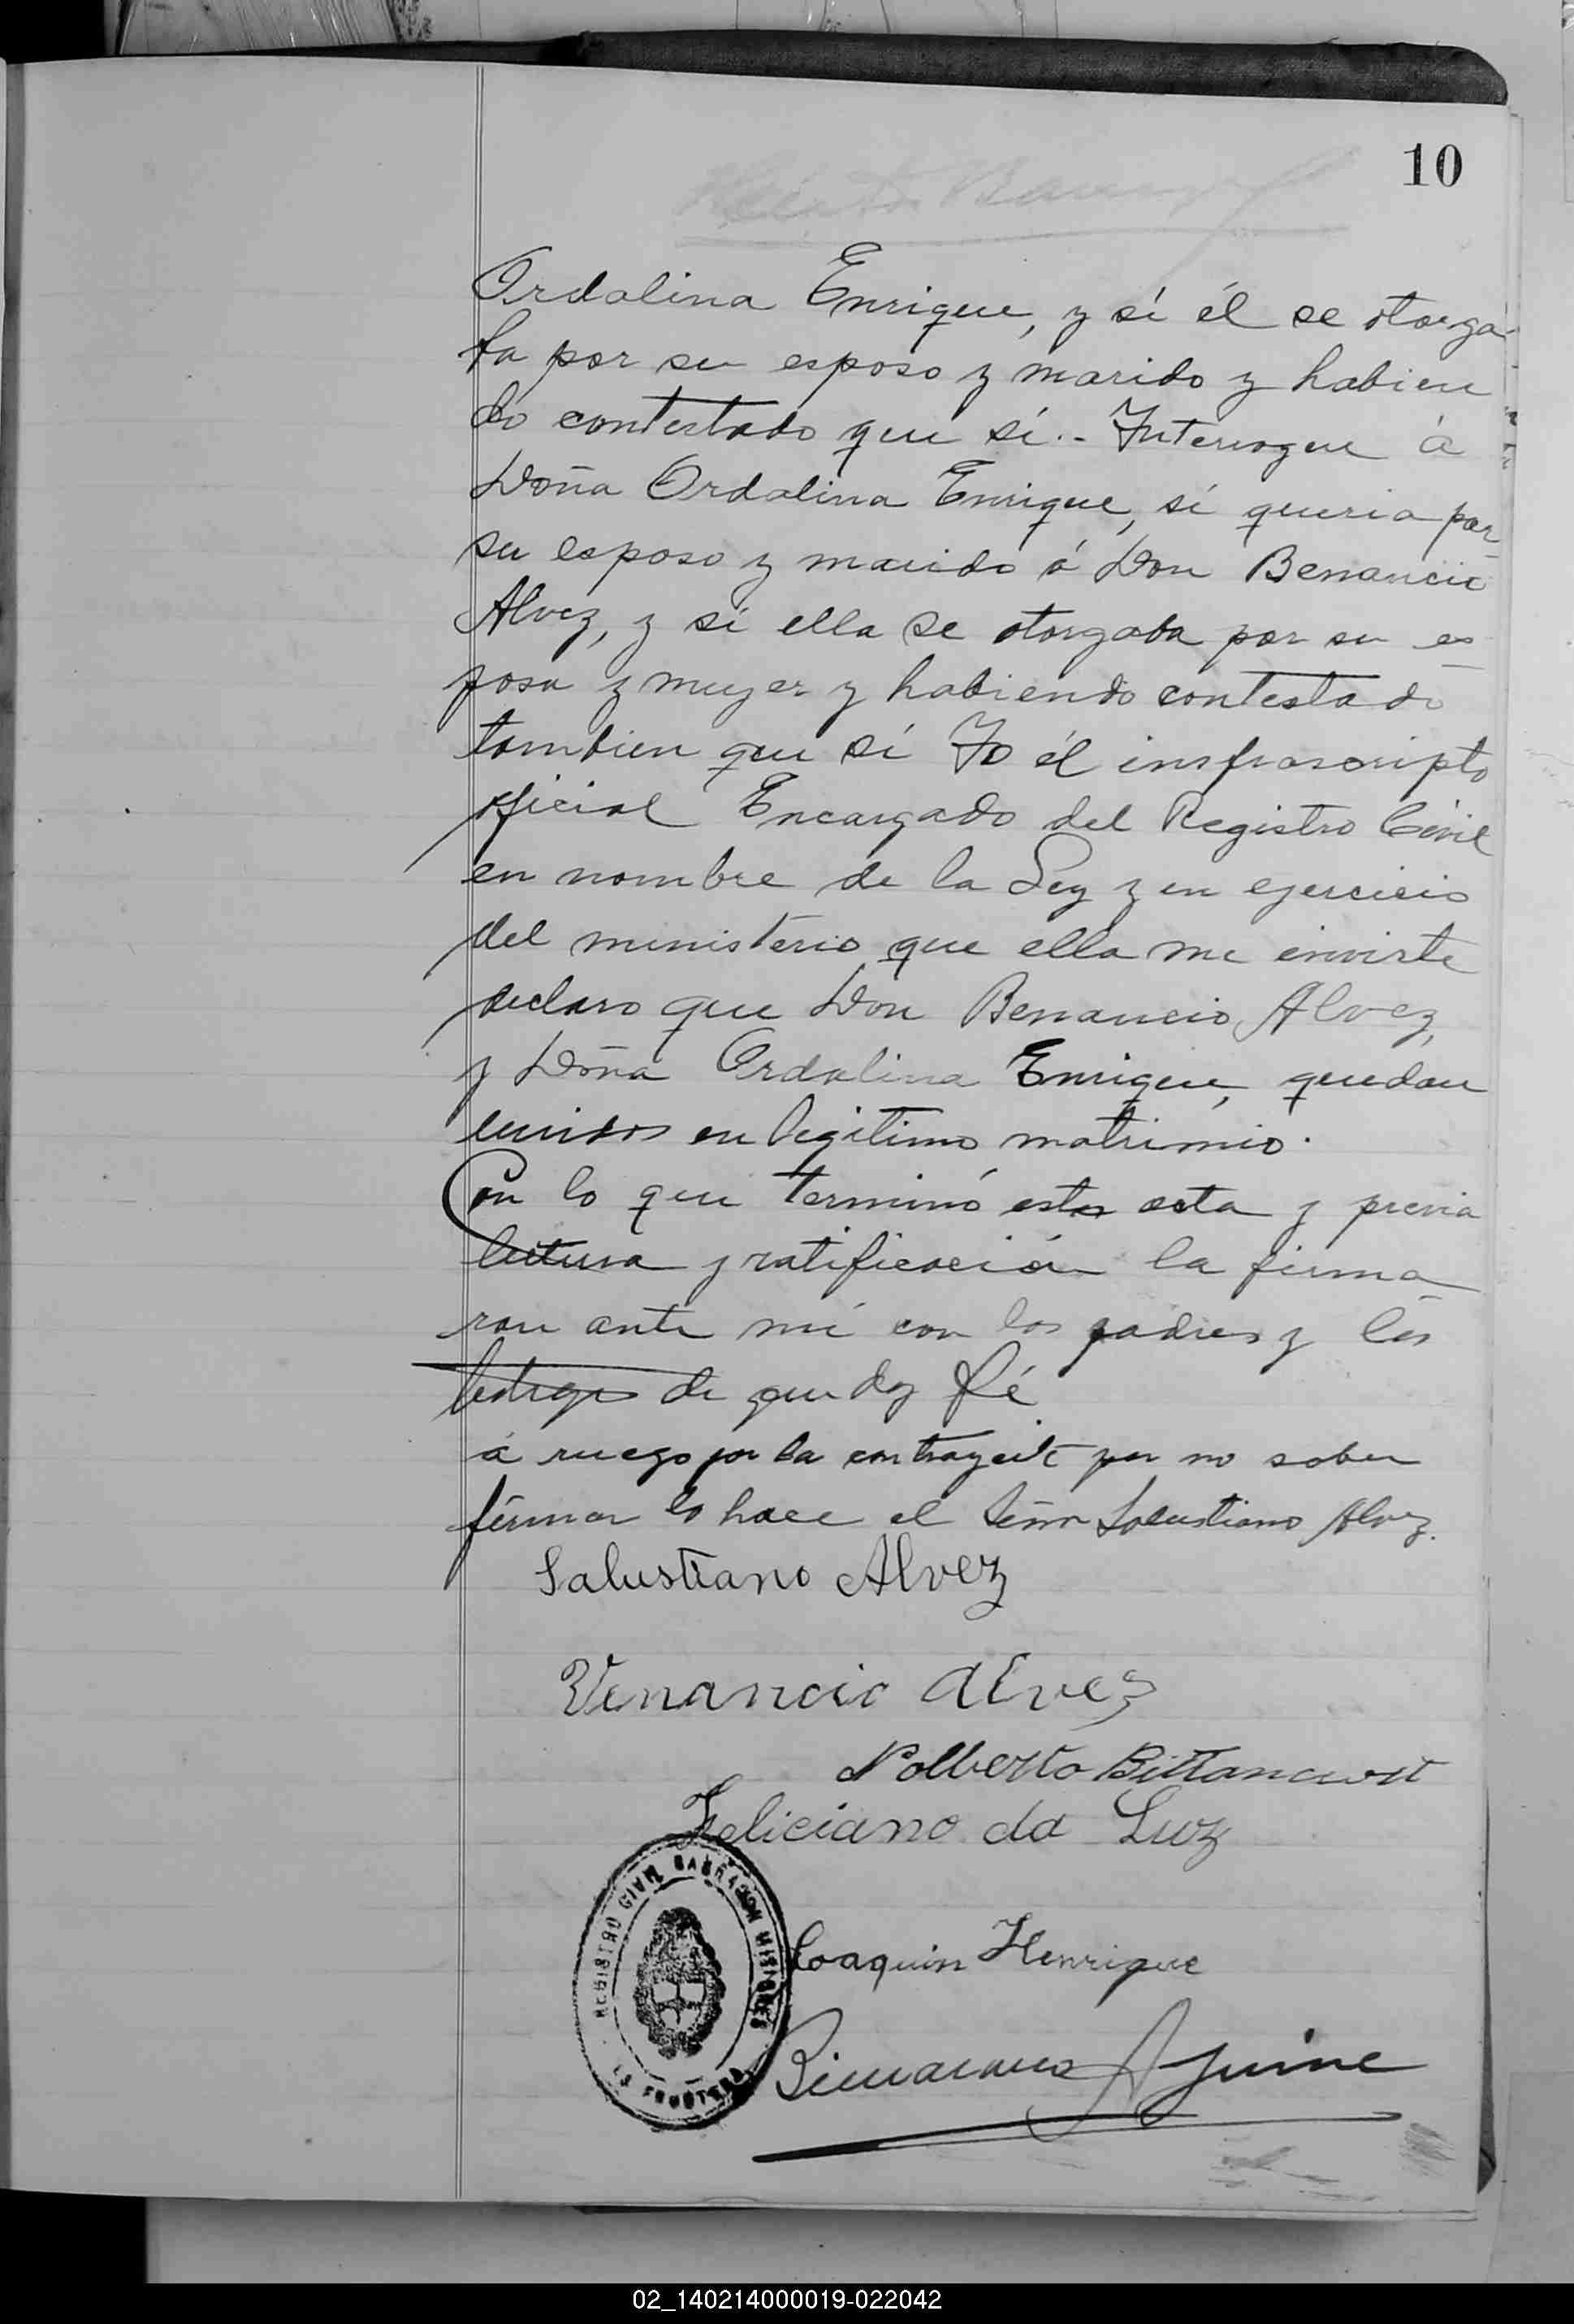 10
Ordalina Enrique, y sí él se otorga-
ba por su esposo y marido y habien
do contestado que sí.- Interrogue á
Doña Ordalina Enrique, sí queria por
su esposo y marido á Don Benancio
Alvez, y sí ella se otorgaba por su es
posa y mujer y habiendo contestado
tambien que sí Yo él insfrascripto
oficial Encargado del Registro Civil
en nombre de la Ley y en ejercicio
del ministerio que ella me inviste
declaro que Don Benancio Alvez,
y Doña Ordalina Enrique, quedan
unidos en legitimo matrimio.
Con lo que terminó esta acta y previa
lectura y ratificación la firma
ron ante mí con los padres y los
testigos de que doy fé
á ruego por la contrayente por no saber
firmar lo hace el señor Salustiano Alvez.
Salustiano Alvez
Venancio Alvez
Nolberto Bittancourt
Feliciano da Luz
REGISTRO CIVIL BARRACON MISIONES
LA FRONTERA
Joaquin Henrique
Aguirre
02_140214000019-022042